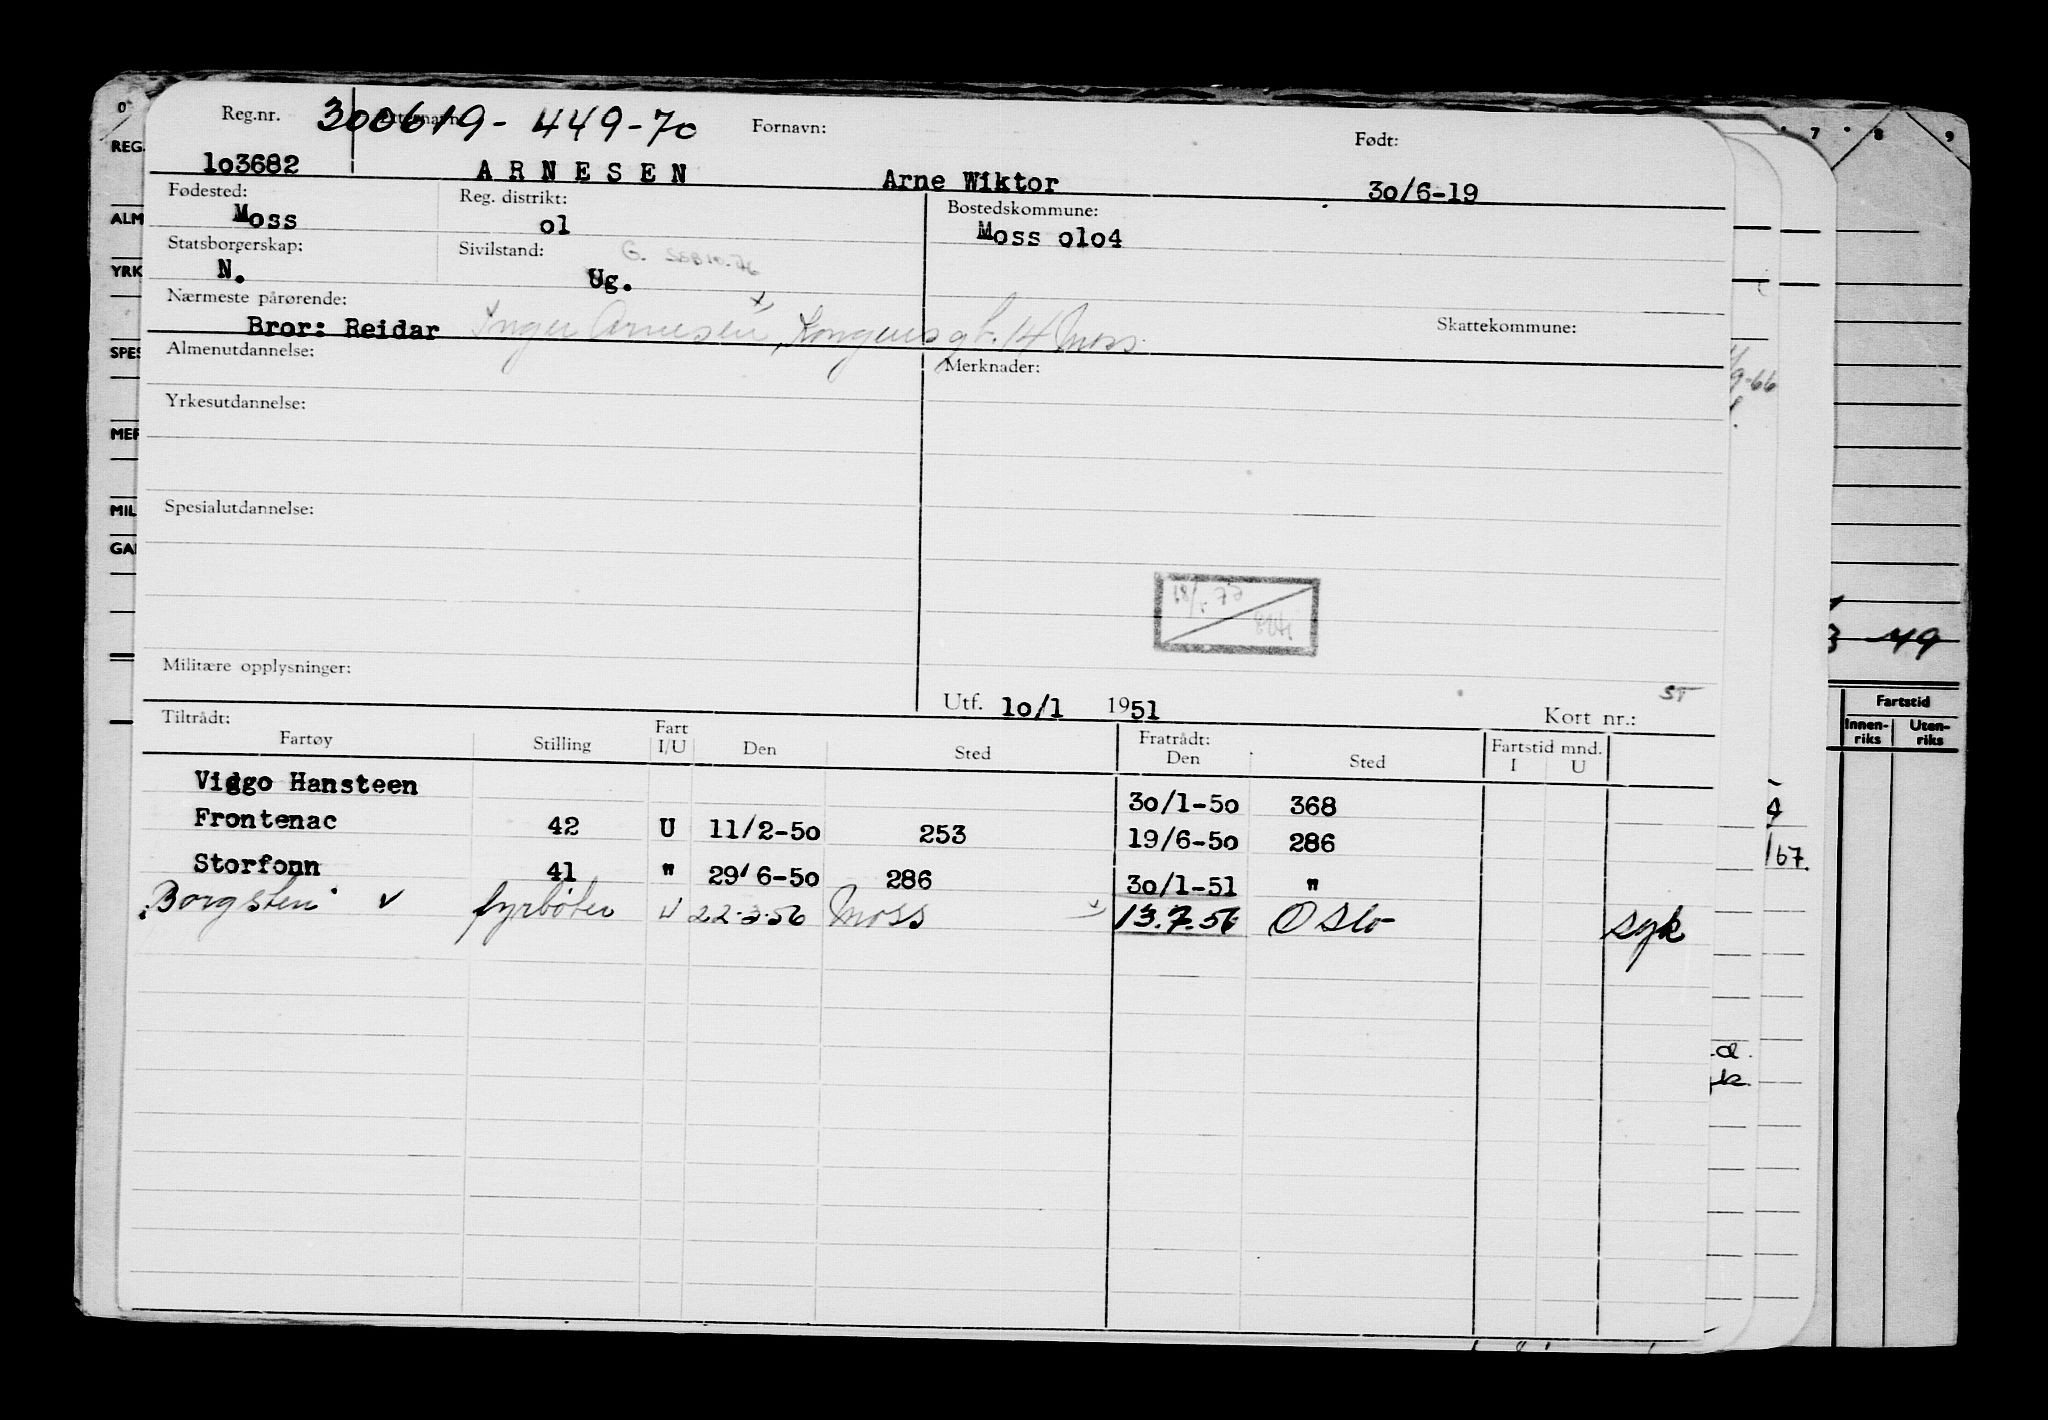 Reg.nr. 300619-449-70 Fornavn: Født:
lo3682 ARNESEN Arne Wiktor 3o/6-19
Fødested: Reg. distrikt: Bostedskommune:
Moss ol Moss olo4
Statsborgerskap: Sivilstand:
N. Ug.
Nærmeste pårørende: Skattekommune:
Bror: Reidar Inger Arnesen, Kongensgt. 14 Moss
Almenutdannelse: Merknader:
Yrkesutdannelse:
Spesialutdannelse:
Militære opplysninger:
Utf. lo/1 1951 Kort nr.:
Tiltrådt: Fratrådt:
Fartøy Stilling Fart I/U Den Sted Den Sted Fartstid mnd. I U
Viggo Hansteen 3o/1-5o 368
Frontenac 42 U 11/2-5o 253 19/6-5o 286
Storfonn 41 " 29/6-5o 286 3o/1-51 "
Borgsten v fyrbøter U 22.3.56 Moss 13.7.56 Oslo syk
REG.
ALM
YRK
SPES
MER
MIL
7 8 9
9-66
49
Fartstid
Innen-riks Uten-riks
67.